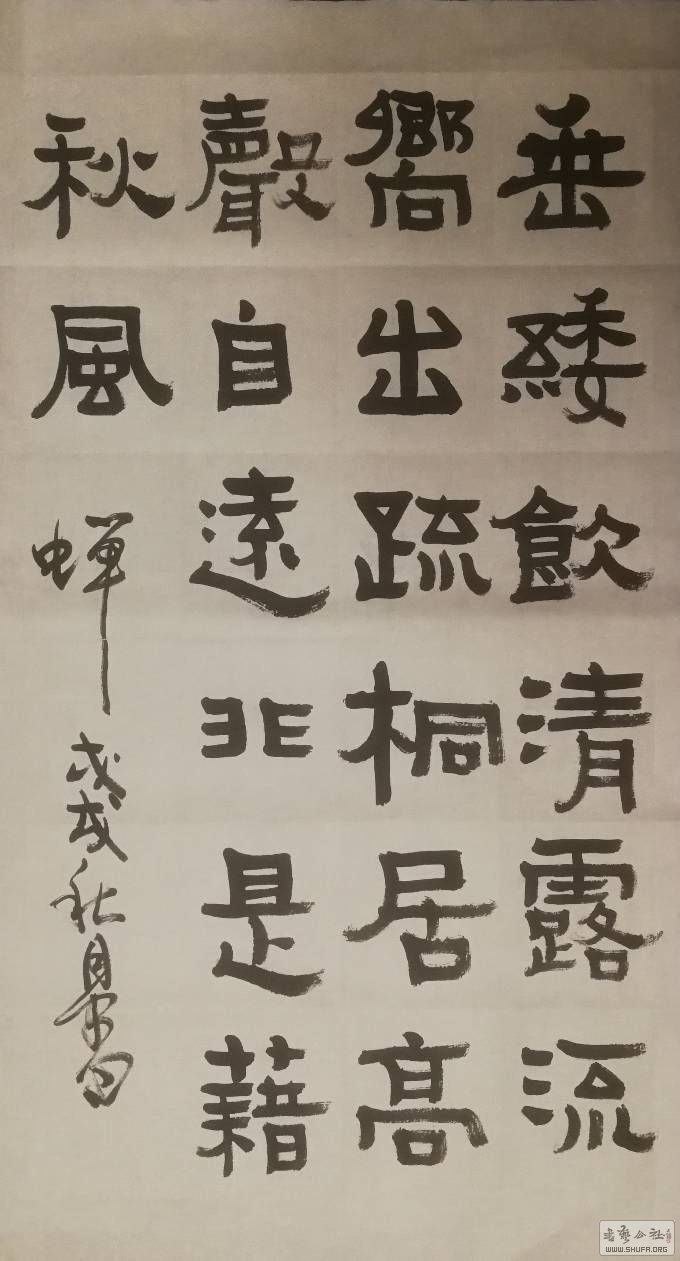 垂緌飲清露流
嚮出疏桐居高
聲自遠非是藉
秋風 蝉 戊戌秋
书艺公社
WWW.SHUFA.ORG